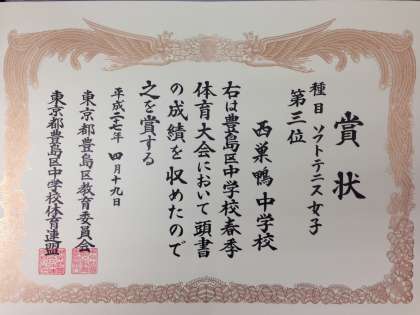 賞状
種目 ソフトテニス女子
第三位
西巣鴨中学校
右は豊島区中学校春季
体育大会において頭書
の成績を収めたので
之を賞する
平成二十七年 四月十九日
東京都豊島区教育委員会
東京都豊島区中学校体育連盟